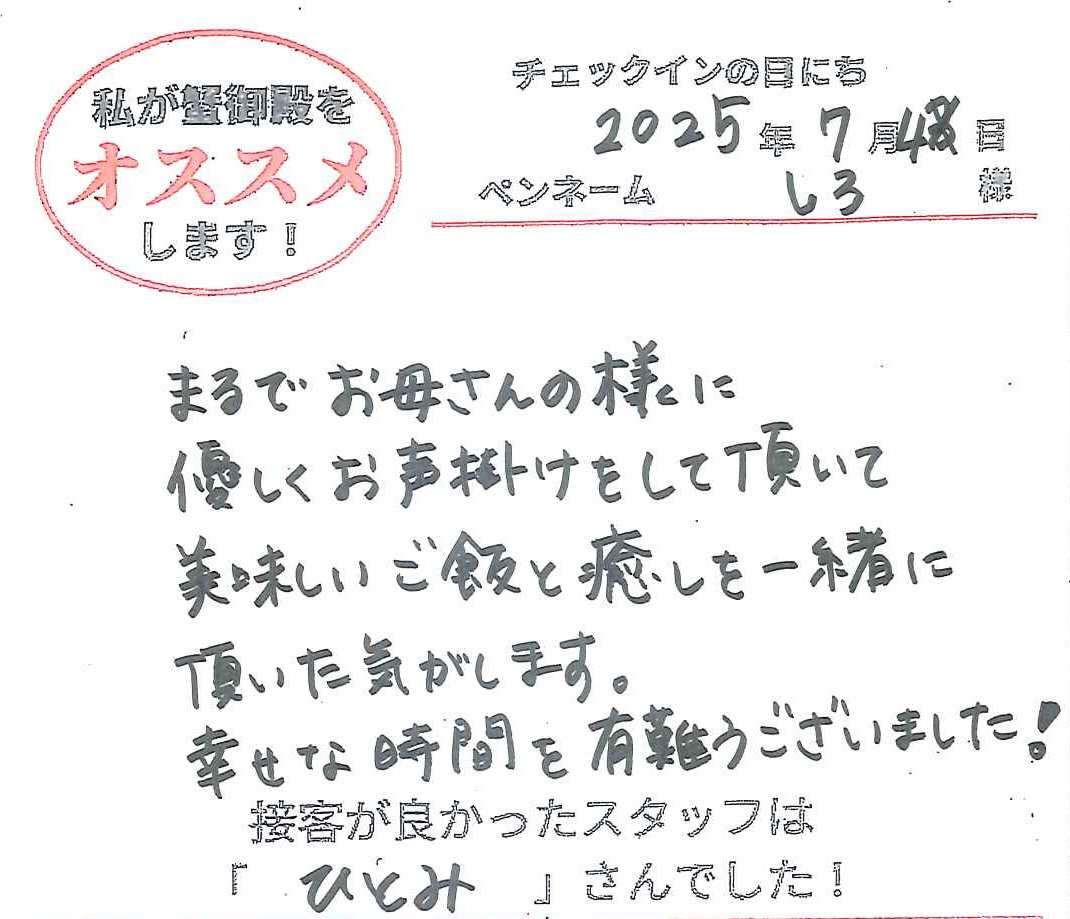 私が蟹御殿を
オススメ
します！
チェックインの日にち
2025年7月4日
ペンネーム しろ 様
まるでお母さんの様に
優しくお声掛けをして頂いて
美味しいご飯と癒しを一緒に
頂いた気がします。
幸せな時間を有難うございました！
接客が良かったスタッフは
「 ひとみ 」さんでした！